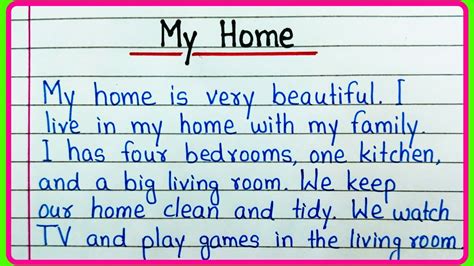 My Home
My home is very beautiful. I
live in my home with my family.
I has four bedrooms, one kitchen,
and a big living room. We keep
our home clean and tidy. We watch
TV and play games in the living room